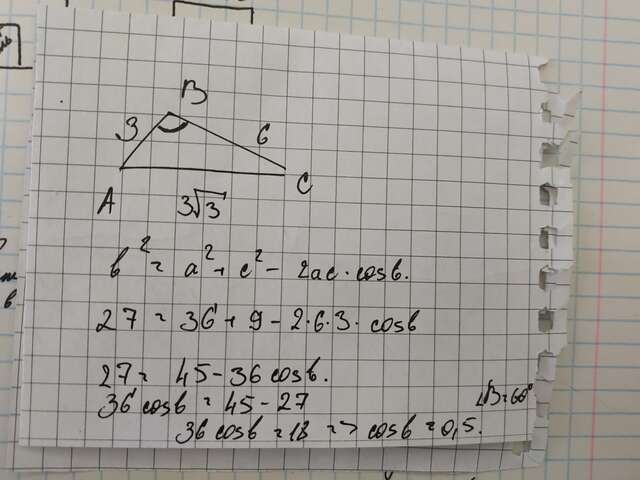 B
3
6
A
3√3
C
b² = a² + c² - 2ac · cosb.
27 = 36 + 9 - 2·6·3·cosb
27 = 45 - 36 cosb.
36 cosb = 45 - 27
36 cosb = 18 => cosb = 0,5.
∠B = 60°